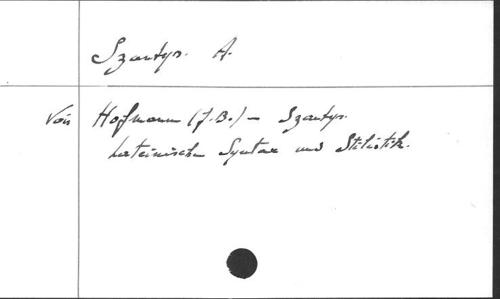 Szantyr. A.
Voir Hofmann (J.B.) – Szantyr.
Lateinische Syntax und Stilistik.